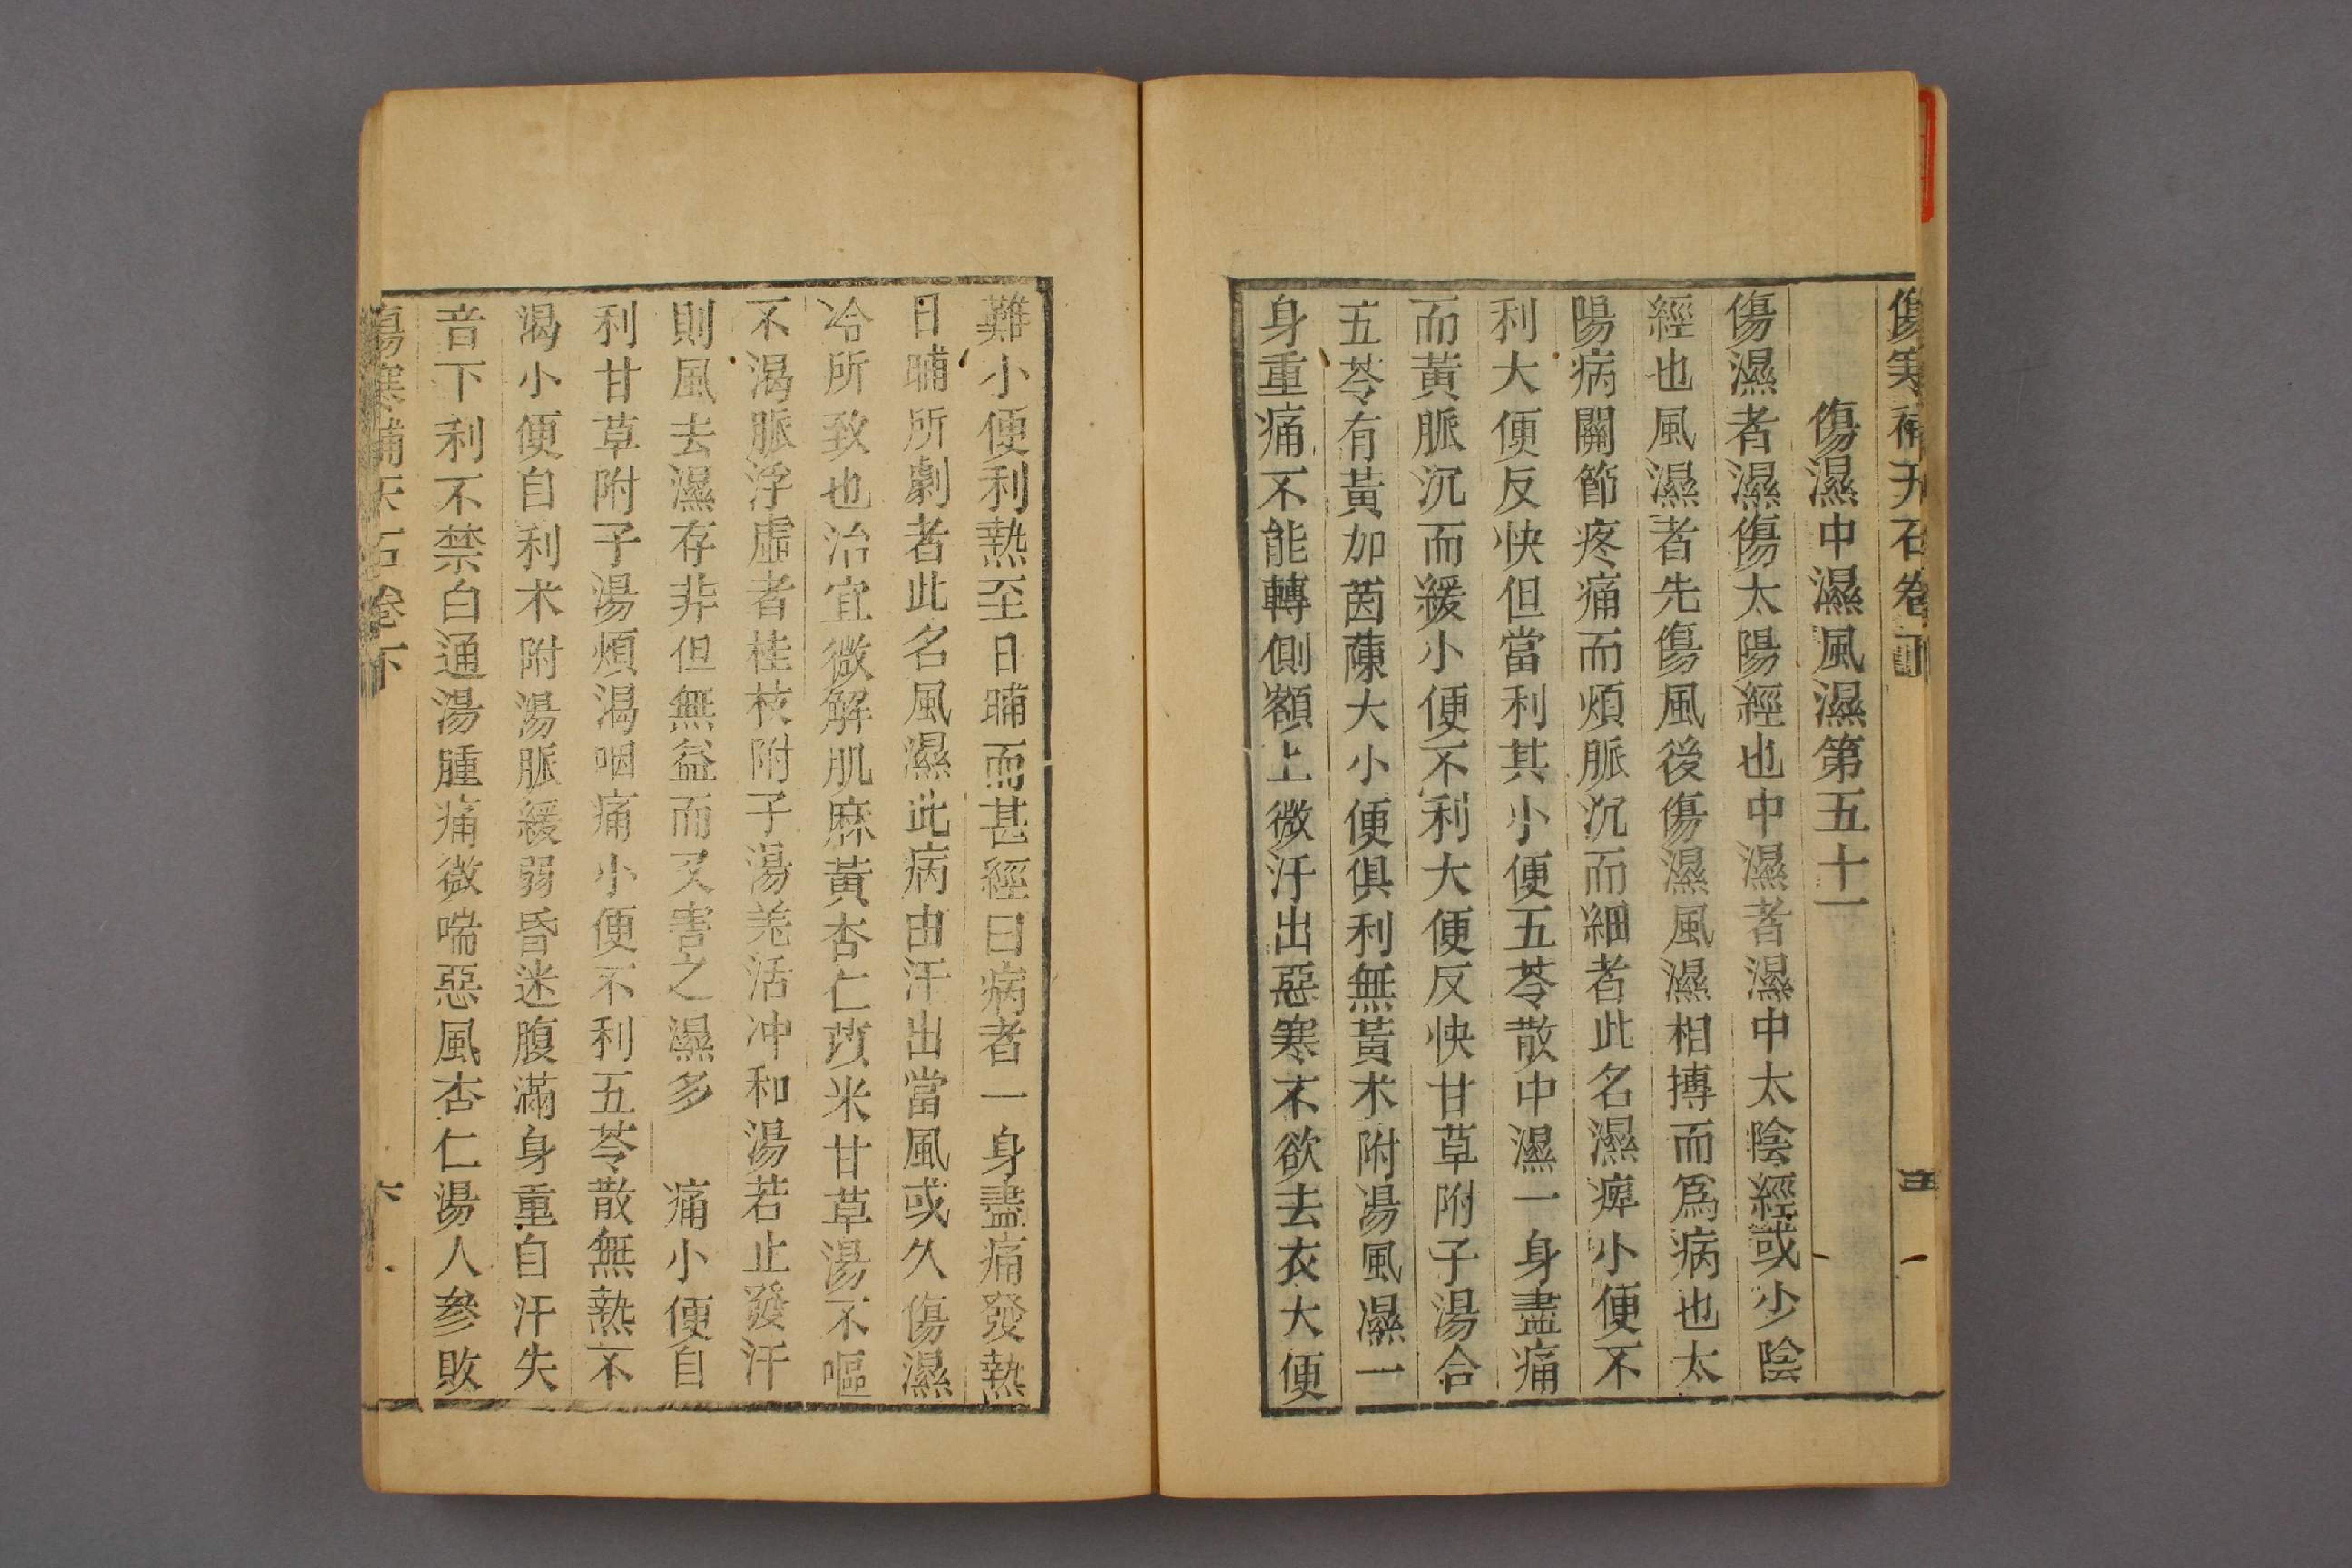 傷寒補天石卷下
五
傷濕中濕風濕第五十一
傷濕者濕傷太陽經也中濕者濕中太陰經或少陰
經也風濕者先傷風後傷濕風濕相搏而爲病也太
陽病關節疼痛而煩脈沉而細者此名濕痺小便不
利大便反快但當利其小便五苓散中濕一身盡痛
而黃脈沉而緩小便不利大便反快甘草附子湯合
五苓有黃加茵蔯大小便俱利無黃术附湯風濕一
身重痛不能轉側額上微汗出惡寒不欲去衣大便
難小便利熱至日晡而甚經曰病者一身盡痛發熱
日晡所劇者此名風濕此病由汗出當風或久傷濕
冷所致也治宜微解肌麻黃杏仁苡米甘草湯不嘔
不渴脈浮虛者桂枝附子湯羌活冲和湯若止發汗
則風去濕存非但無益而又害之濕多　痛小便自
利甘草附子湯煩渴咽痛小便不利五苓散無熱不
渴小便自利术附湯脈緩弱昏迷腹滿身重自汗失
音下利不禁白通湯腫痛微喘惡風杏仁湯人參敗
傷寒補天石卷下